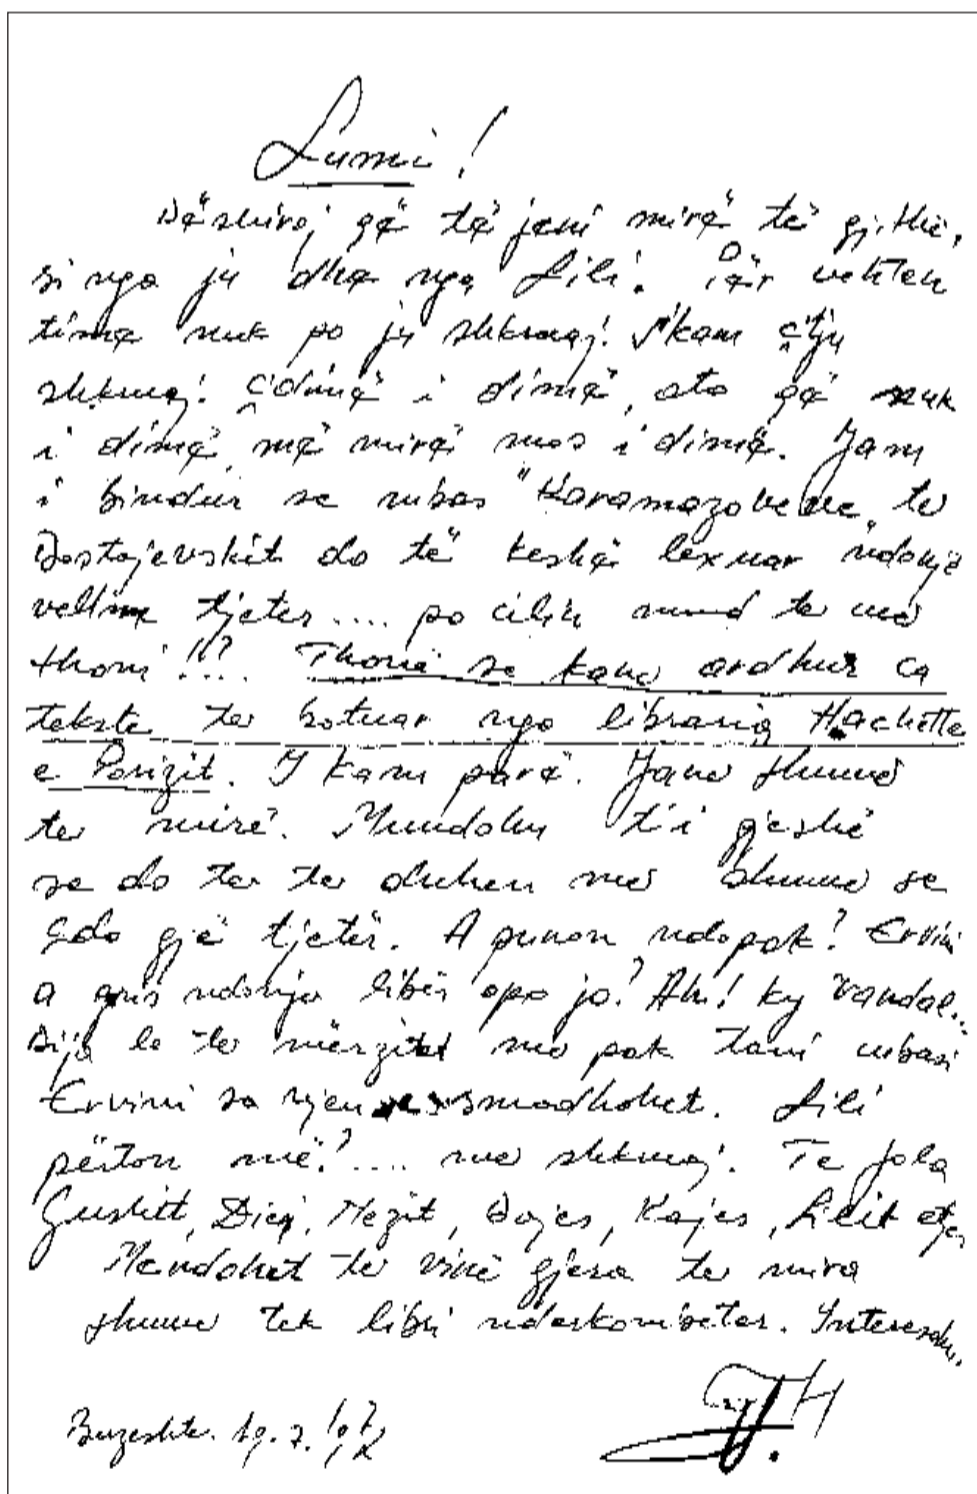 Lumi!
Dëshiroj që të jeni mirë të gjithë,
si nga ju dhe nga Lili. Për vehten
time nuk po ju shkruaj! S'kam ç'tju
shkruaj! Ç'dimë i dimë, ato që nuk
i dimë, më mirë mos i dimë. Jam
i bindur se mbas "Karamazoveve" te
Dostojevskit do të keshë lexuar ndonjë
vellim tjeter.... po cilin mund te me
thoni!!?.... Thonë se kane ardhur ca
tekste te botuar nga libraria Hachette
e Parizit. I kam parë. Jane shume
te mirë. Mundohu t'i gjeshë
se do te te duhen me shume se
çdo gjë tjetër. A punon ndopak? Ervini
a gris ndonje libër apo jo? Ah! ky Vandal...
Dija le te mërzitet me pak tani mbasi
Ervini sa vjen smadhohet. Lili
përton më?.... me shkruaj. Te fala
Gushit, Dies, Mezit, Dajes, Kajes, Leit etj
Mendohet te vinë gjëra te mira
shume tek libri nderkombetar. Interesohu.
Buzeshte. 19. 7. 1972
H